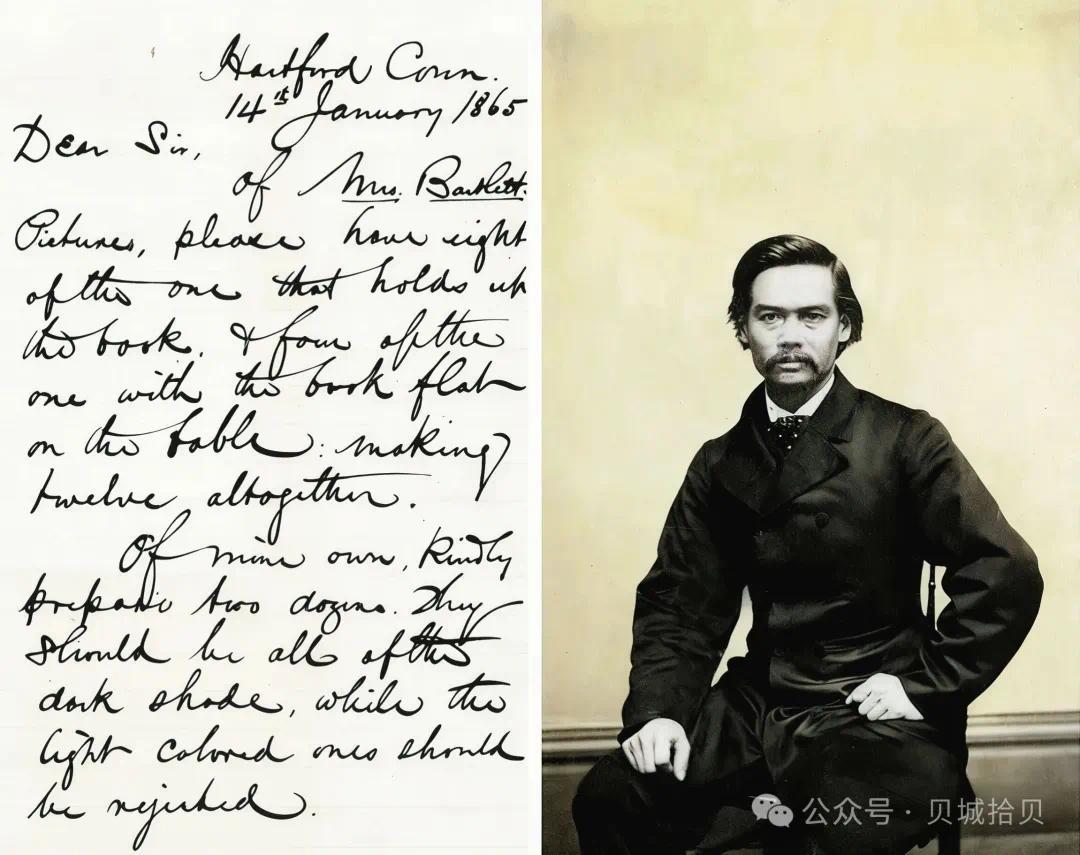 Hartford Conn.
14th January 1865
Dear Sir,
of Mrs. Bartlett.
Pictures, please have eight
of the one that holds up
the book, & four of the
one with the book flat
on the table: making
twelve altogether.
Of mine own, kindly
prepare two dozens. They
should be all of the
dark shade, while the
light colored ones should
be rejected.
公众号 · 贝城拾贝